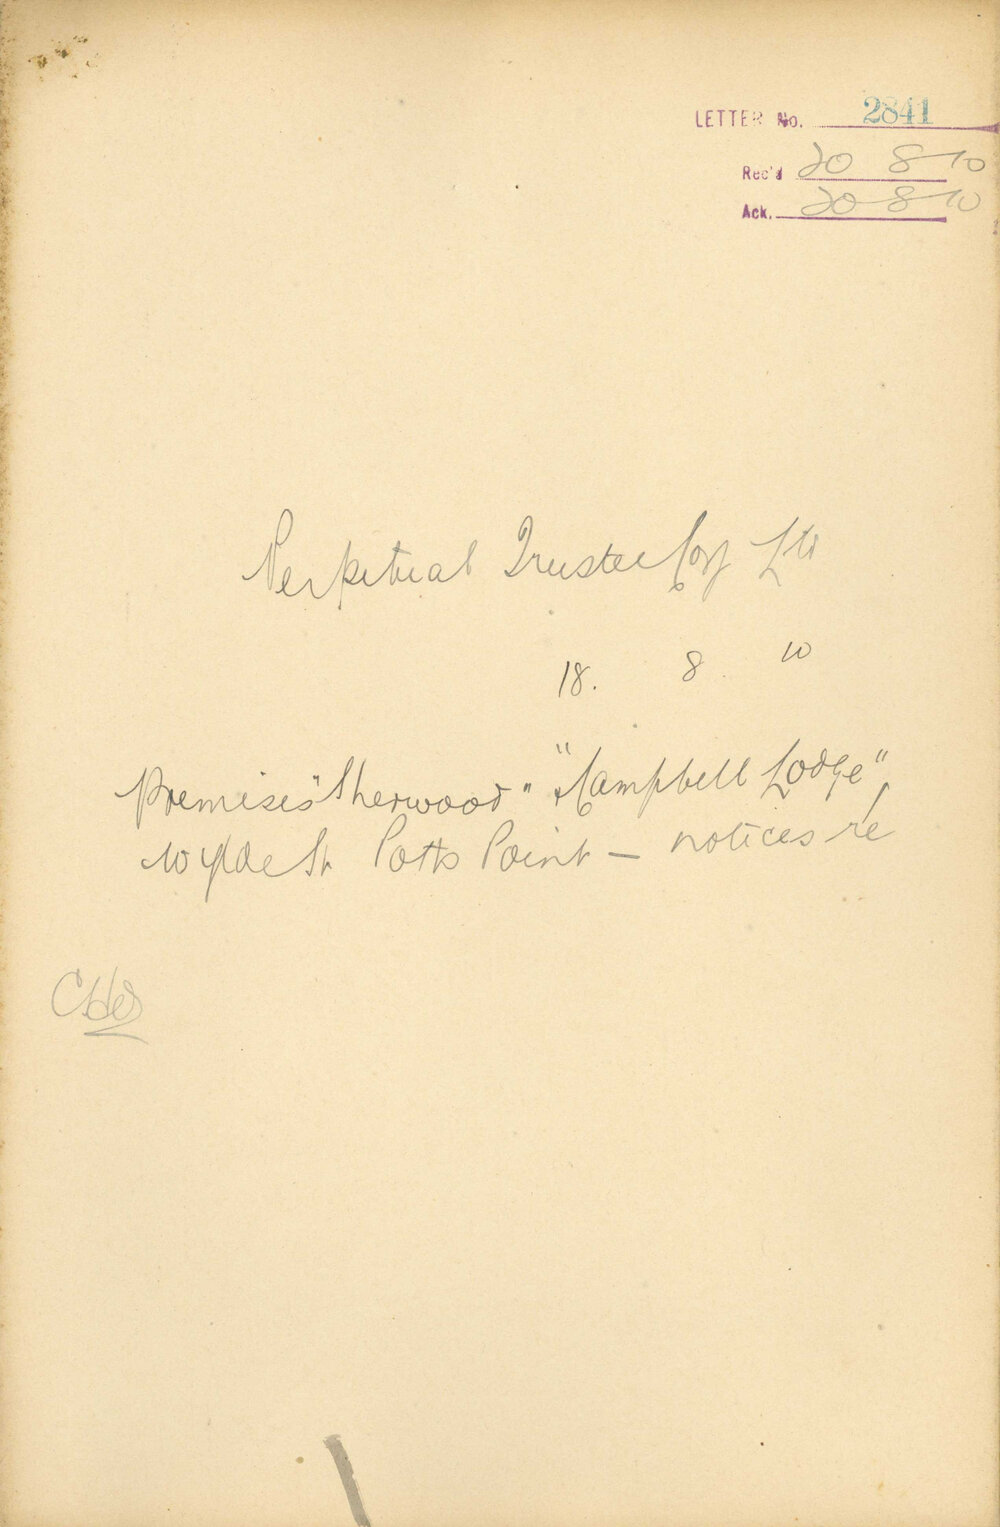 LETTER No. 2841
Rec'd 20 8 10
Ack. 20 8 10
Perpetual Trustee Coy Ltd
18. 8 10
Premises "Sherwood" "Campbell Lodge",
Wylde St Potts Point — notices re